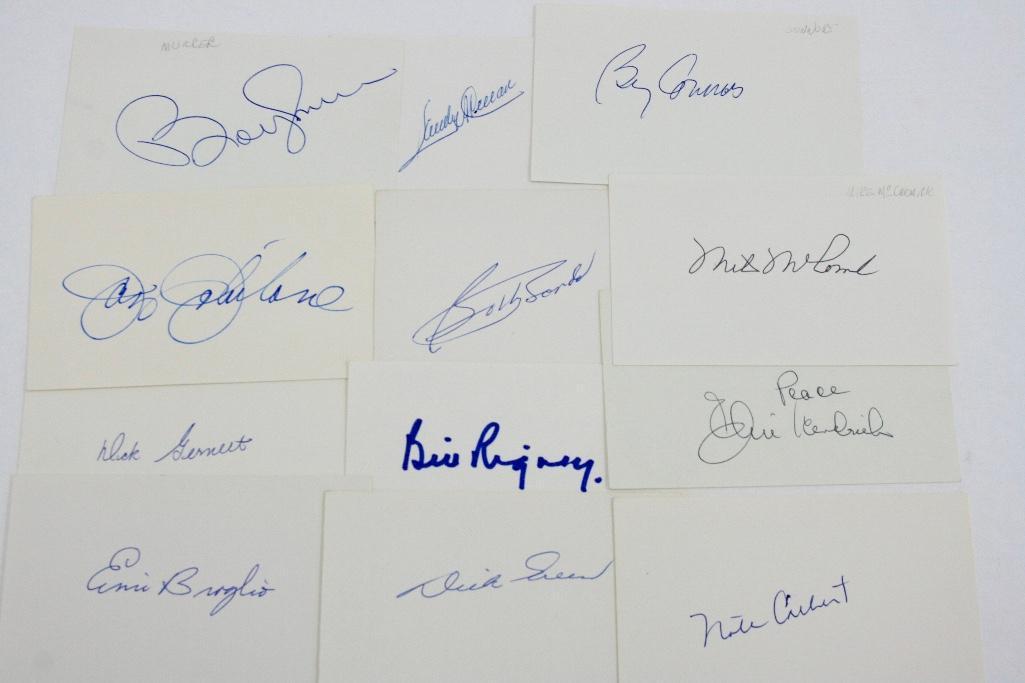 MURCER
Bobby Murcer
CONNORS
Billy Connors
Jay Johnstone
Bobby Bonds
MIKE McCORMICK
Mike McCormick
Dick Gernert
Bill Rigney.
Peace
Elvin Hendricks
Ernie Broglio
Dick Green
Nate Colbert